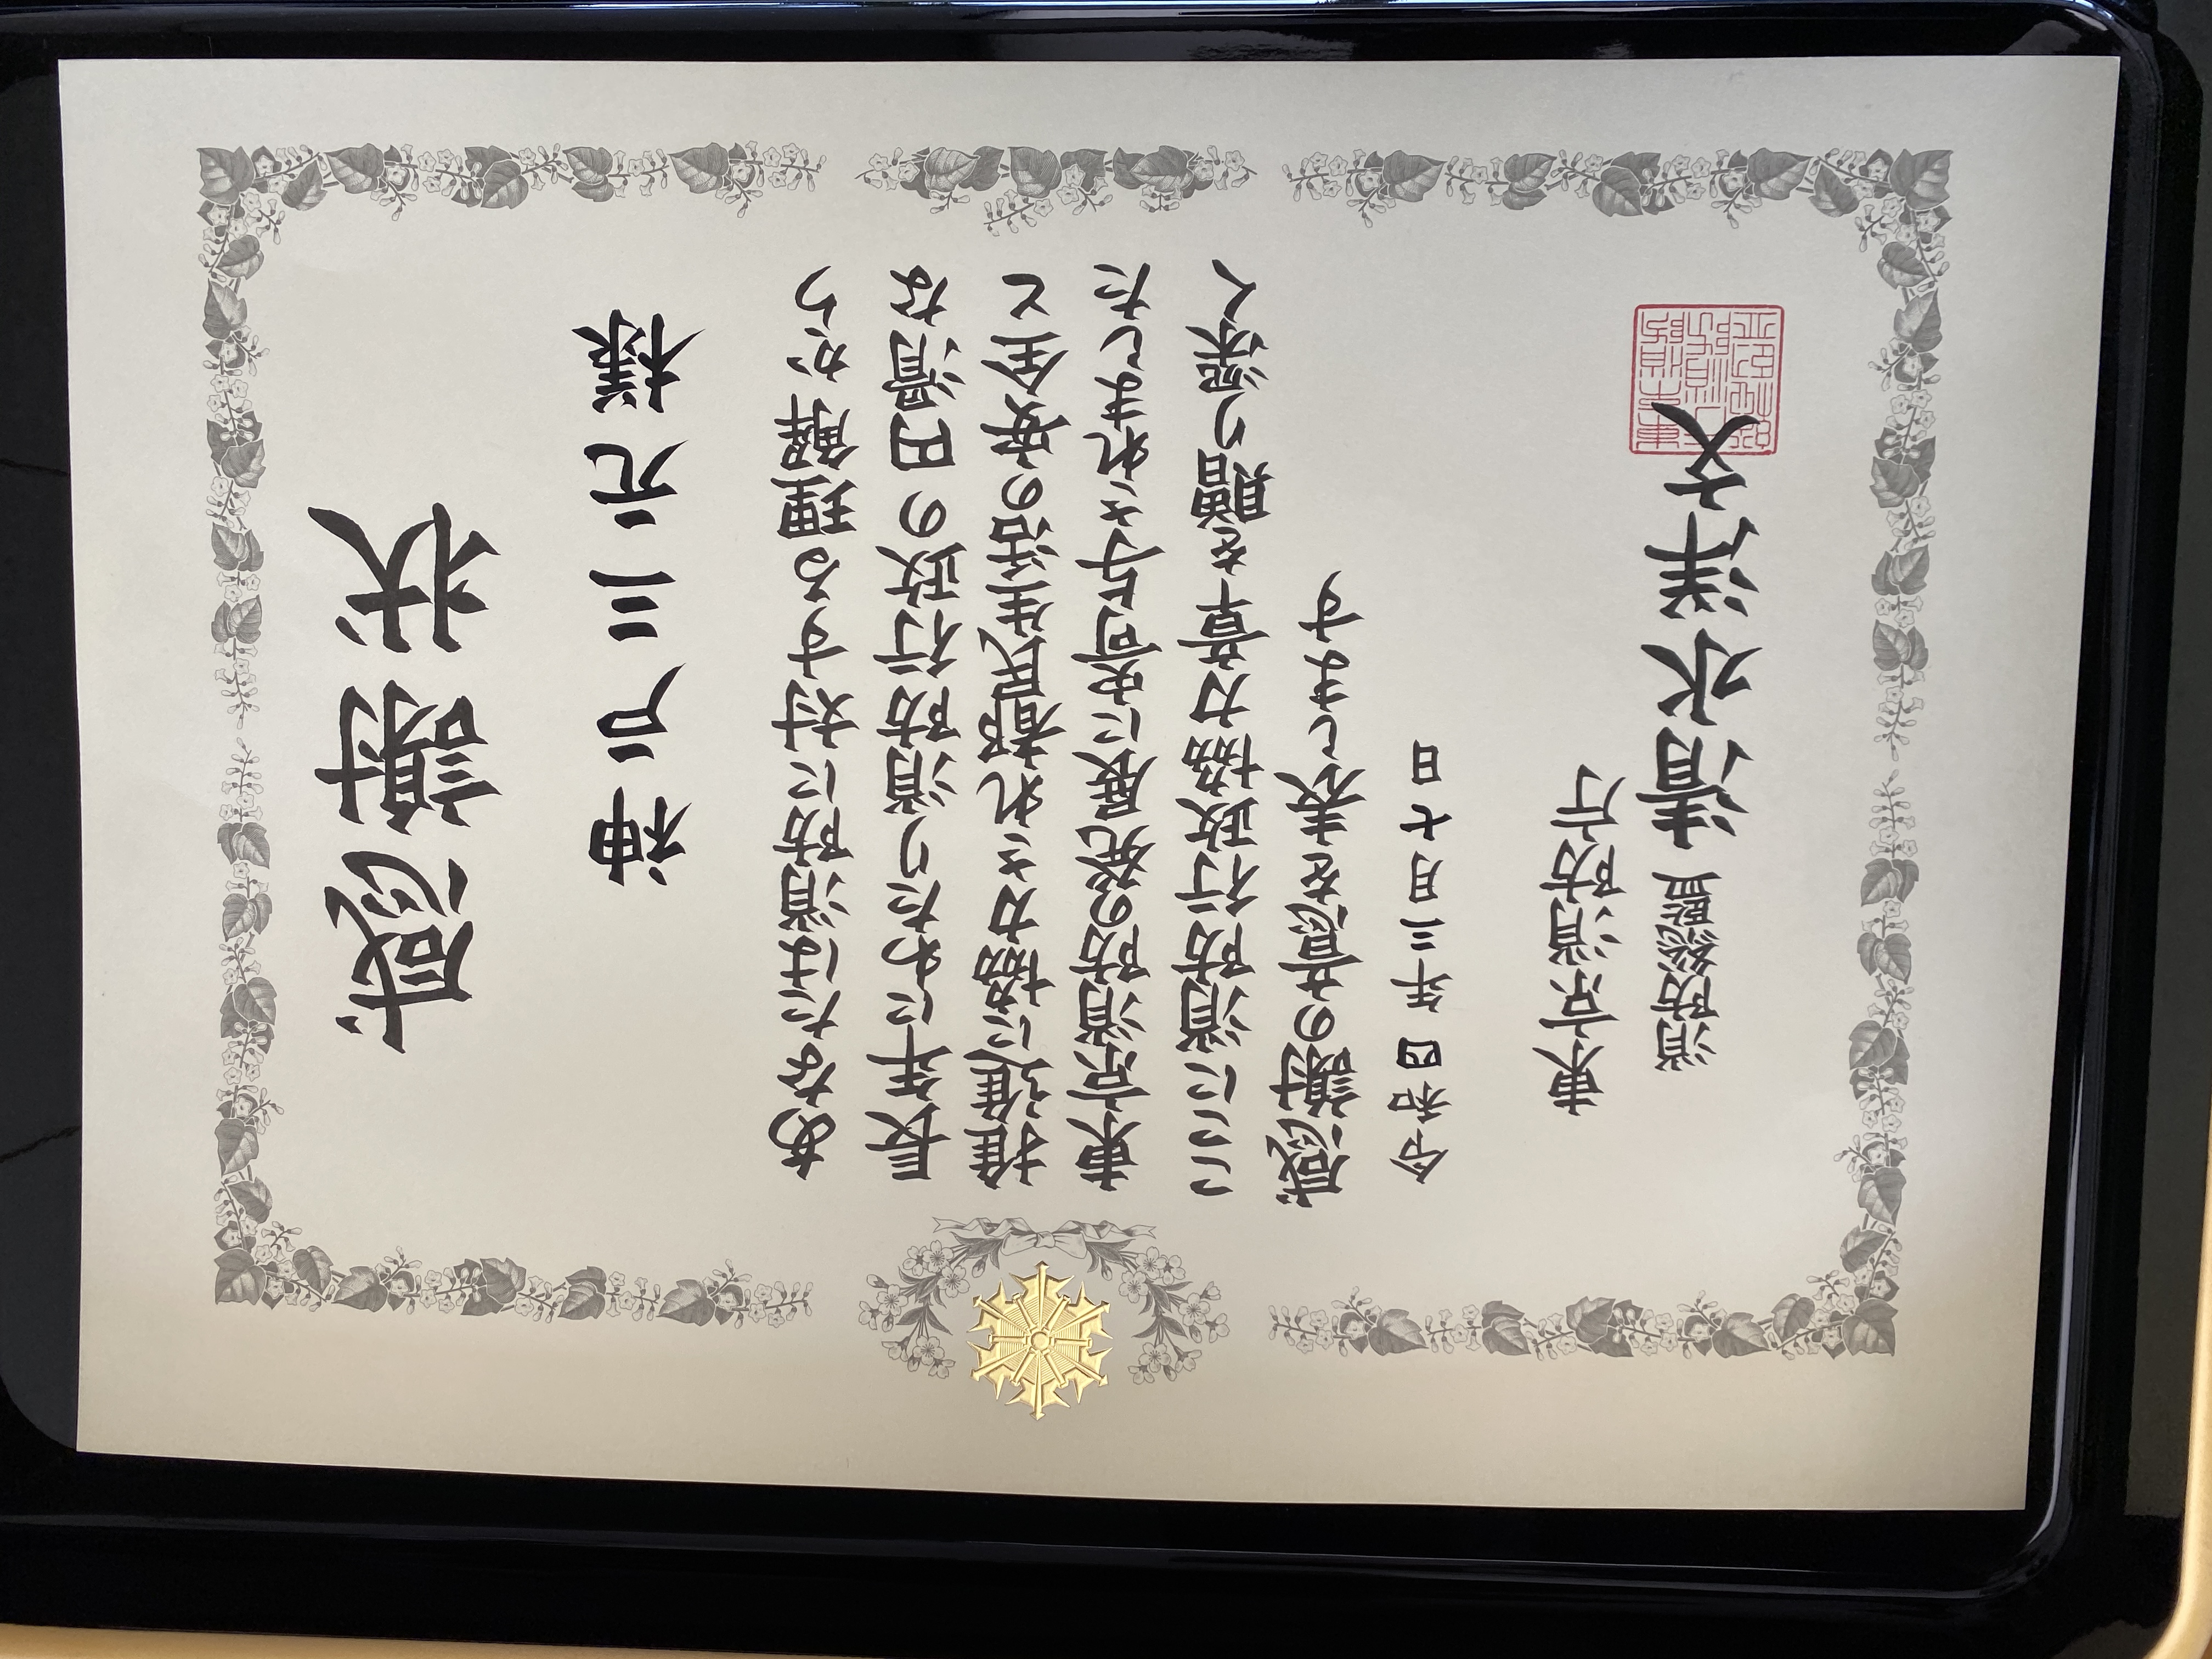 感謝状
神尺三元様
あなたは消防に対する理解から
長年にわたり消防行政の円滑な
推進に協力され都民生活の安全と
東京消防の発展に寄与されました
ここに消防行政協力章を贈り深く
感謝の意を表します
令和四年三月七日
東京消防庁
消防総監 清水洋文